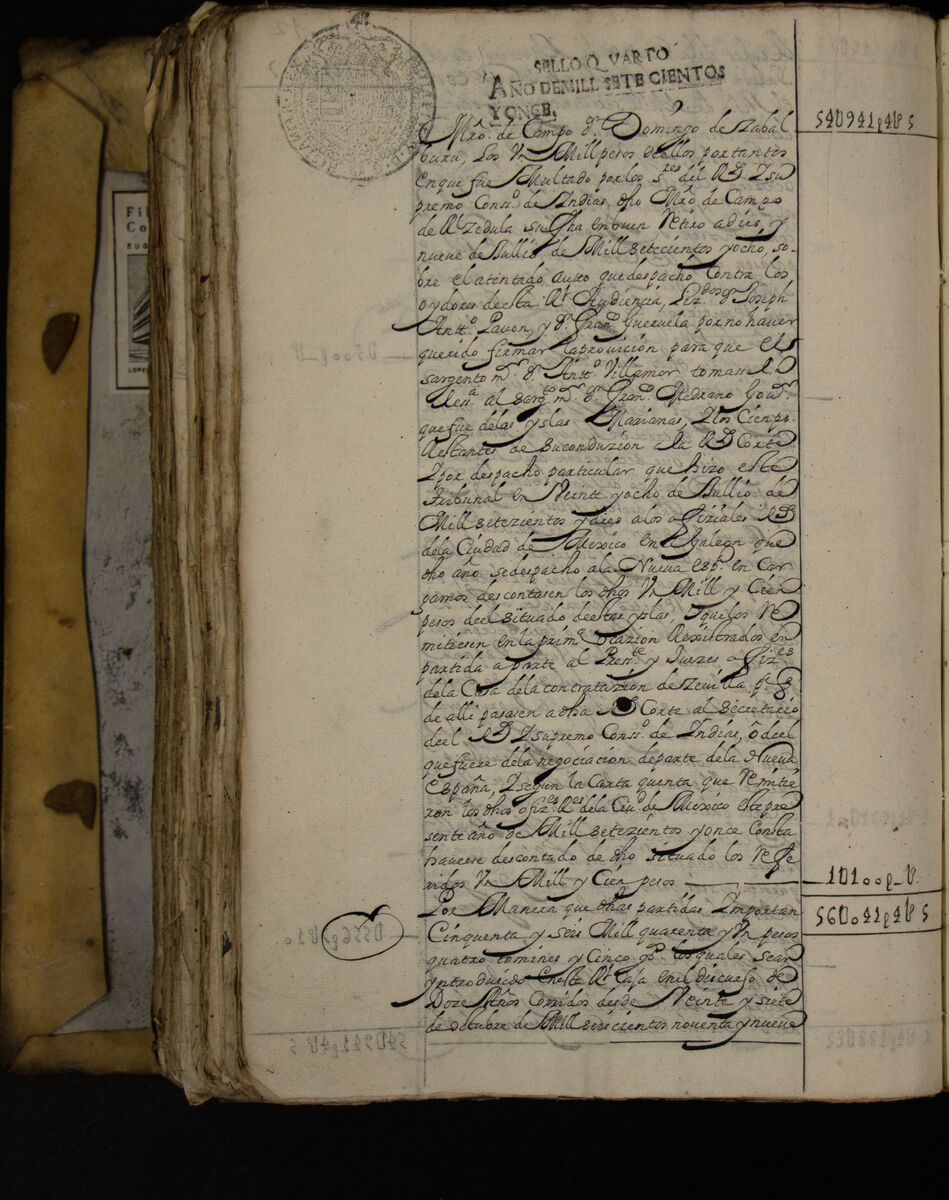 SELLO Q VARTO
AÑO DE MILL SETECIENTOS
Y ONCE.
54U941p4U5
Mro. de Campo Dn. Domingo de Zabal
buru, Los Vn Mill pesos de ellos por tantos
en que fue Multado por los Sres. del Rl. Y Su
premo Consso. de Indias dho Mro de Campo
de Rl Zedula su fha en buen Retiro a dies, y
nueve de Jullio de Mill setecientos y ocho, so
bre el atentado auto que despachó contra los
oydores de esta Rl. Audiencia, Lizdos. Dn. Joseph
Antto. Pavon, y Dn. Grano. Gueruela por no haver
querido firmar la provicion para que el
sargento mor. Dn. Antto. Villamor tomasse la
Ressa. al sargto. mor. Dn. Grano. Medrano Gour.
que fue de las yslas Marianas, Y los Cien ps.
Restantes de su conduzion a la Rl. Corte
Y por despacho particular que hizo este
Tribunal en Veinte y ocho de Jullio de
Mill setezientos y dies a los ofiziales Rs.
de la Ciudad de Mexico en el galeon que
dho año se despacho a la Nueva espa. en Car
gamos descontasen los dhos Vn Mill y Cien
pesos del situado de estas yslas, Y que los Re
mitiesen en la prima. ocazion Rexistrados en
partida a parte al Presste. y Juezes ofizes.
de la Casa de la contratazion de Zevilla
de alli pasasen a dha Rl. Corte al secretario
del Rl. Y supremo Consso. de Indias, ô del
que fuere de la negociacion de parte de la Nueva
España, Y segun la Carta quenta que Remitie
ron los dhos ofizes. Res. de la Ciud. de Mexico este pre
sente año de Mill setezientos y once Consta
haverse descontado de dho situado los Refe
ridos Vn Mill y Cien pesos
1U100p_U.
Por Manera que dhas partidas Importan
56U041p4U5
Cinquenta y seis Mill quarenta y Vn pesos
quatro tomines y Cinco gs. los quales sean
yntroduzido en esta Rl. Caja en el discurso de
Doze Años Corridos desde Veinte y siete
de octubre de Mill seiscientos noventa y nueve